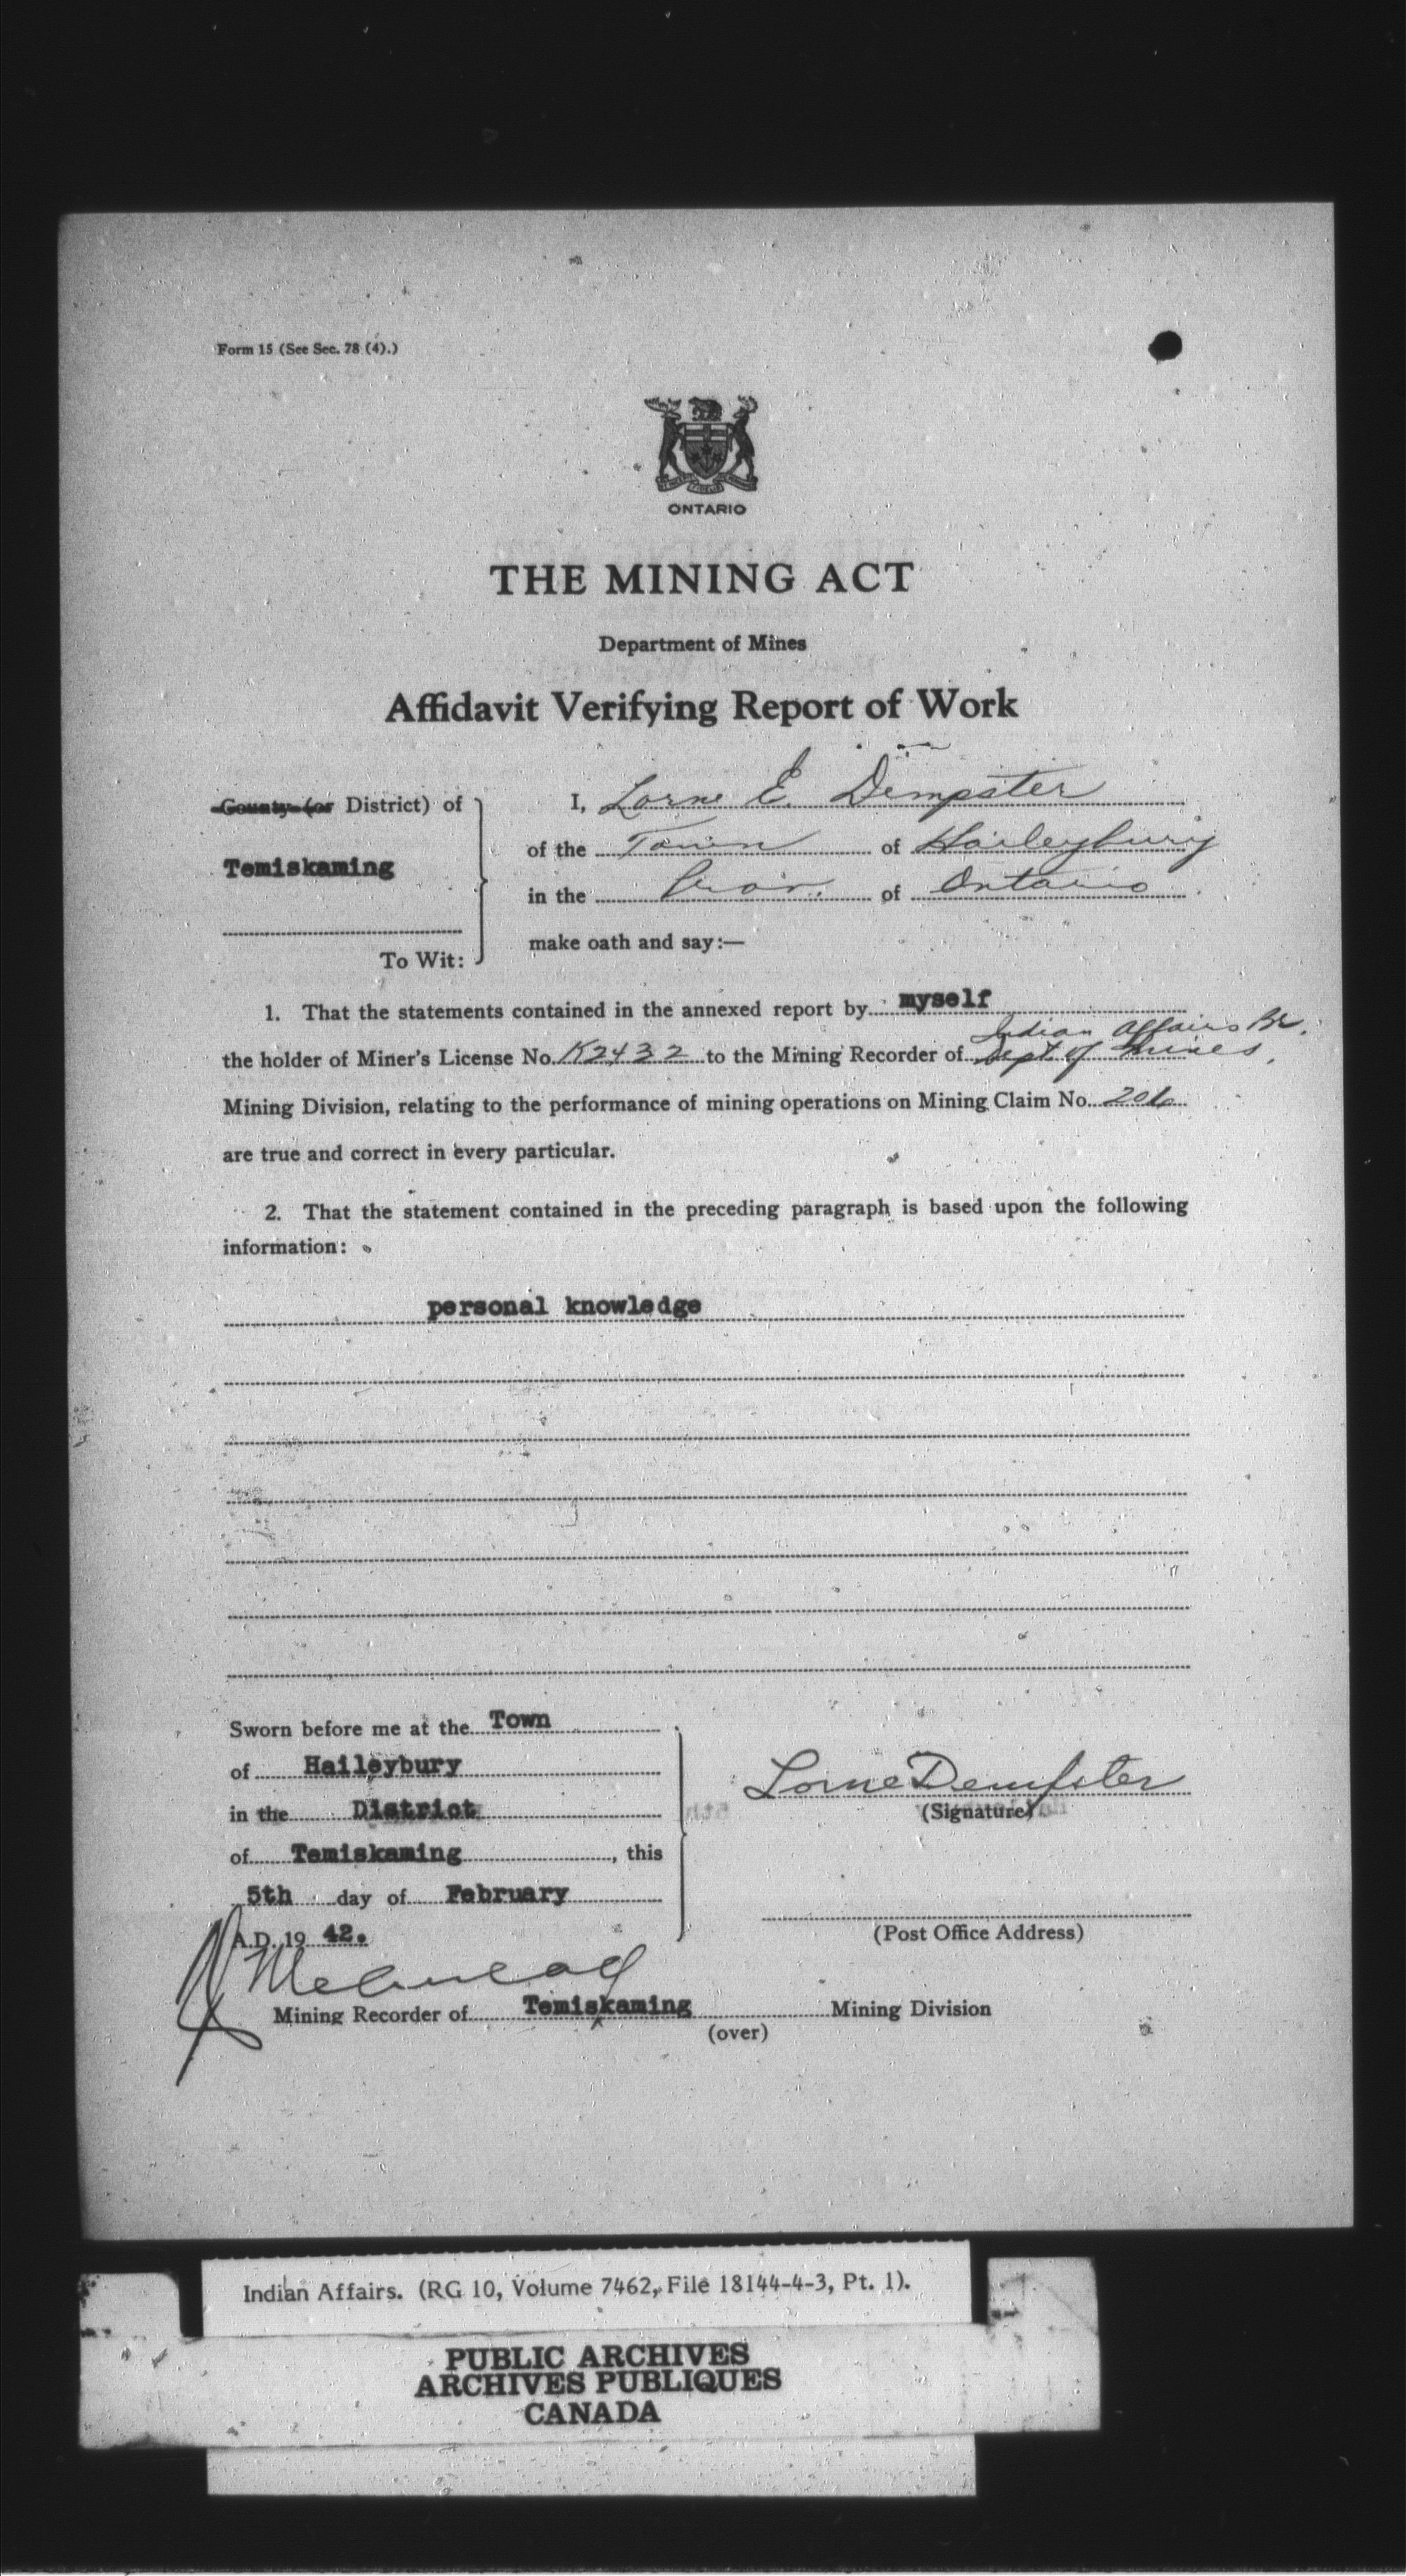 Form 15 (See Sec. 78 (4).)
ONTARIO
THE MINING ACT
Department of Mines
Affidavit Verifying Report of Work
County (or District) of
Temiskaming
To Wit:
I, Lorne E. Dempster
of the Town of Haileybury
in the Prov. of Ontario
make oath and say:—
1. That the statements contained in the annexed report by myself
Indian Affairs Br.
the holder of Miner's License No. K2432 to the Mining Recorder of Dept of Mines,
Mining Division, relating to the performance of mining operations on Mining Claim No. 206
are true and correct in every particular.
2. That the statement contained in the preceding paragraph is based upon the following
information:
personal knowledge
Sworn before me at the Town
of Haileybury
in the District
of Temiskaming, this
5th day of February
A.D. 19 42.
Lorne Dempster
(Signature)
(Post Office Address)
Mining Recorder of Temiskaming Mining Division
(over)
Indian Affairs. (RG 10, Volume 7462, File 18144-4-3, Pt. 1).
PUBLIC ARCHIVES
ARCHIVES PUBLIQUES
CANADA